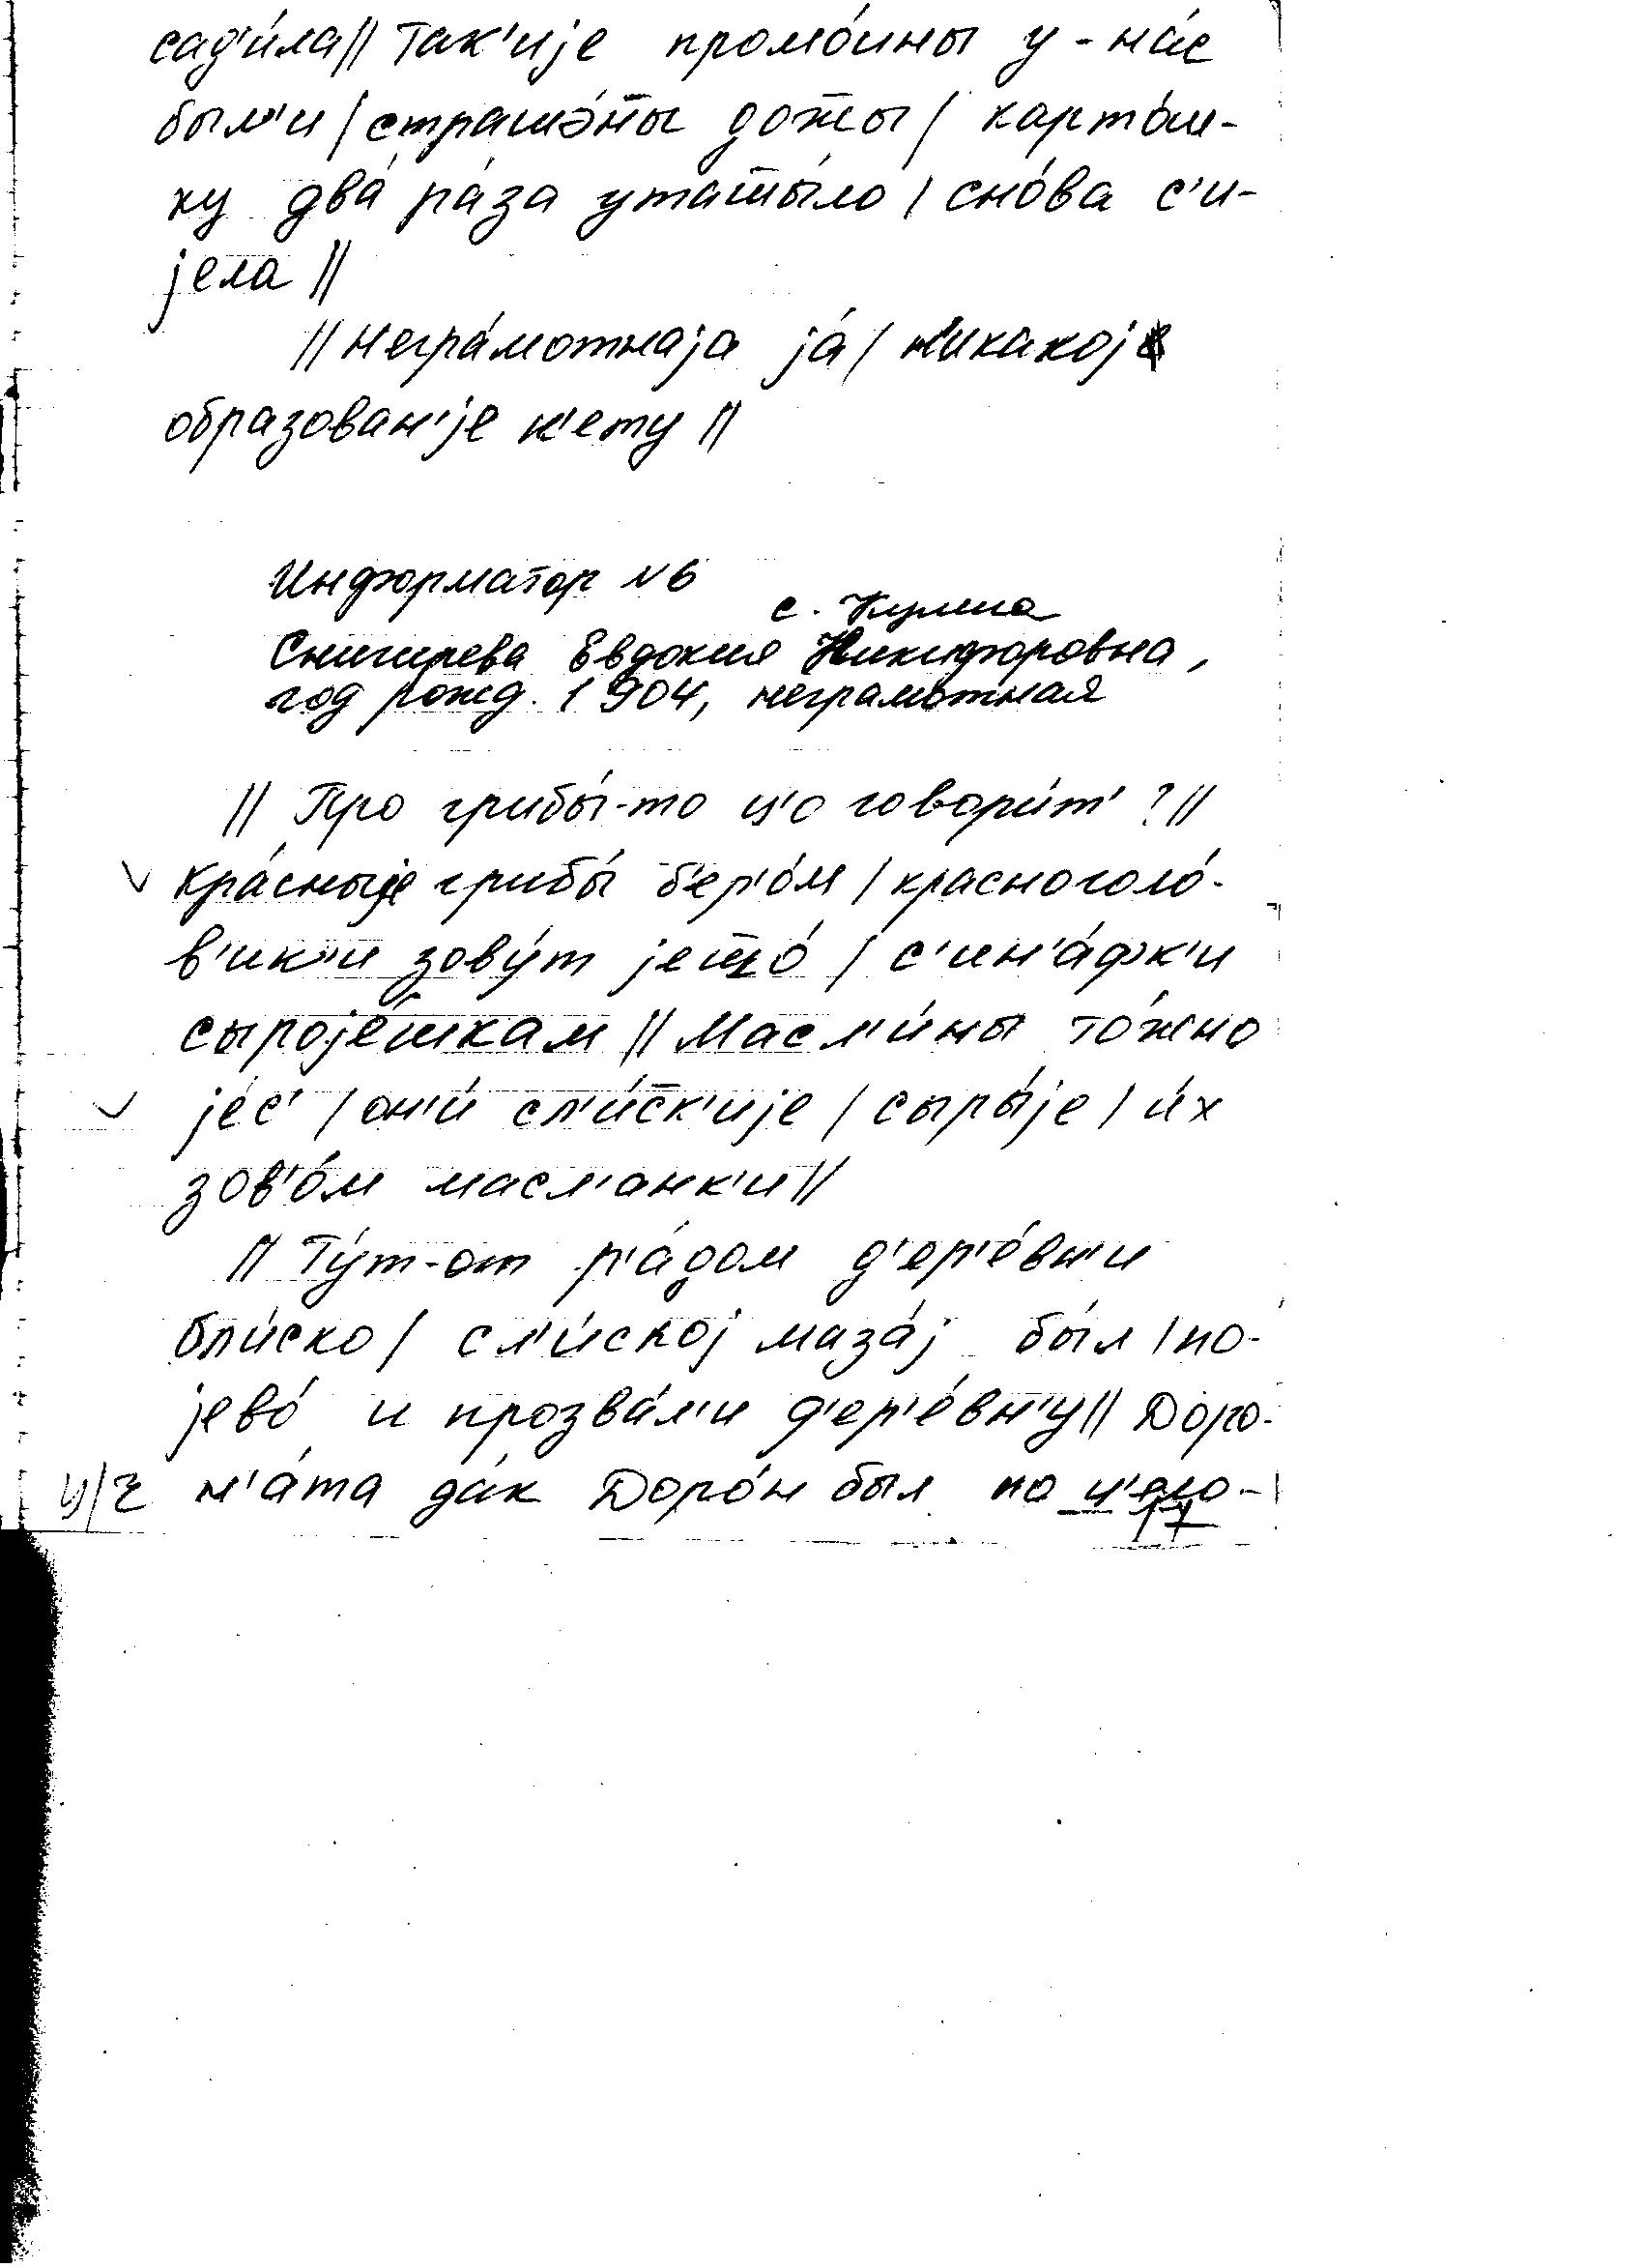 сад'и́ла || Так'ије промо́ины у-на́с
был'и | страшэ́н̄ы дож̄ы | карто́ш-
ку два́ ра́за уташ̄ы́ло | сно́ва с'и-
јела ||
|| Негра́мотнаја ја́ | н'икакој
образован'је н'ету ||
Информатор №6
с. Кулига
Снигирева Евдокия Никифоровна,
год рожд. 1904, неграмотная
|| Про грибы́-то ц'о говори́т' ? ||
Кра́сныје грибы́ б'ер'о́м | красноголо́-
в'ик'и зову́т јешшо́ | с'ин'а́фк'и
сыроје́шкам || Масл'и́ны то́жно
је́с' | он'и́ сл'и́ск'ије | сыры́је | и́х
зов'о́м масл'анк'и ||
|| Ту́т-от р'а́дом д'ер'е́вн'и
бли́ско | сл'и́ској маза́ј бы́л | по-
јево́ и прозва́л'и д'ер'е́вн'у || Доро-
ц/ч н'а́та да́к Доро́н был по ц'ело-